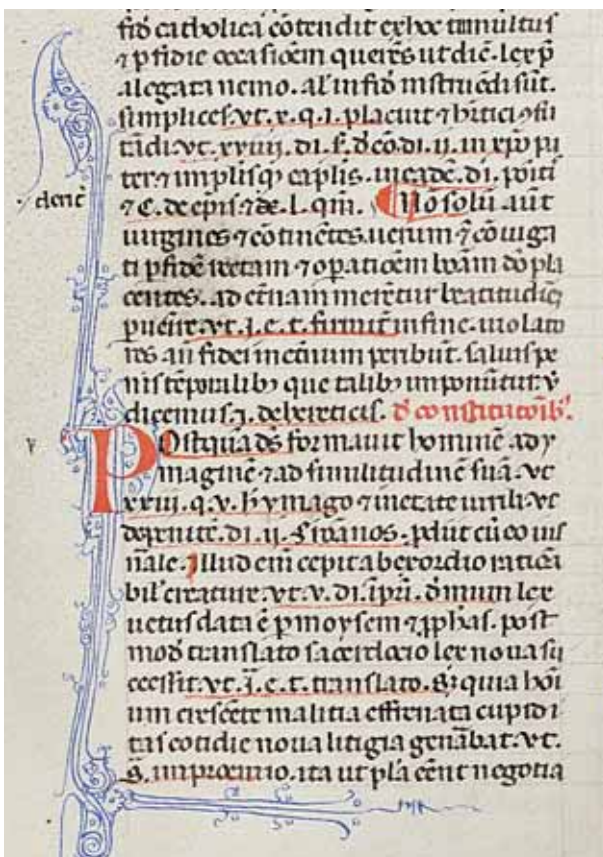 fid̄ catholica cōtendit ex hoc tumultus
⁊ ꝑfidie occasiōem querēs ut dic̄. lex ꝑ
alegata nemo. al' in fid̄ instruēdi sūt.
simplices. vt. x. q. i. placuit ⁊ h̄itici ꝯfu
tādi. vt. xxiiij. di. s. d' cō. di. ij. in xpō pa
ter. ⁊ in
denc̄
⁊ C. de epis. ⁊ de. l. qm̄. Nō solū aūt
uirgines ⁊ cōtinētes. uerum ⁊ cōiuga
ti ꝑ fidē rectam ⁊ oꝑatiōem bōam dō pla
centes. ad et̄nam merētur beatitudīeꝫ
ꝑuenire. vt. j. e. t. firmit̄ in fine. uiolato
res aūt fidei ꝑeribūt. saluis pe
nis tēporalibꝫ que talibꝫ imponūtur. v̄
dicemus. j. de hereticis. d' constitucōib'.
p
Postquā d̄s formauit hominē ad y
maginē ⁊ ad similitudinē suā. vt
xxiii. q. v. h̄ ymago ⁊ in etate uirili. vt
de penitē. di. ij. s. romanos. ꝓdiit cū eo ius
nāle. Illud enī cepit ab exordio rationa
bil' creature. vt. v. di. i pri. d' inum lex
uetus data ē ꝑ moysem ⁊ ꝓph̄as. post
mod̄ translato sacerdocio lex noua su
ccessit. vt. j. e. t. translato. S; quia hoi
um crescēte malitia effrenata cupidi
tas cotidie noua litigia gen̄abat. vt.
s. in prohemio. ita ut placēnt negotia